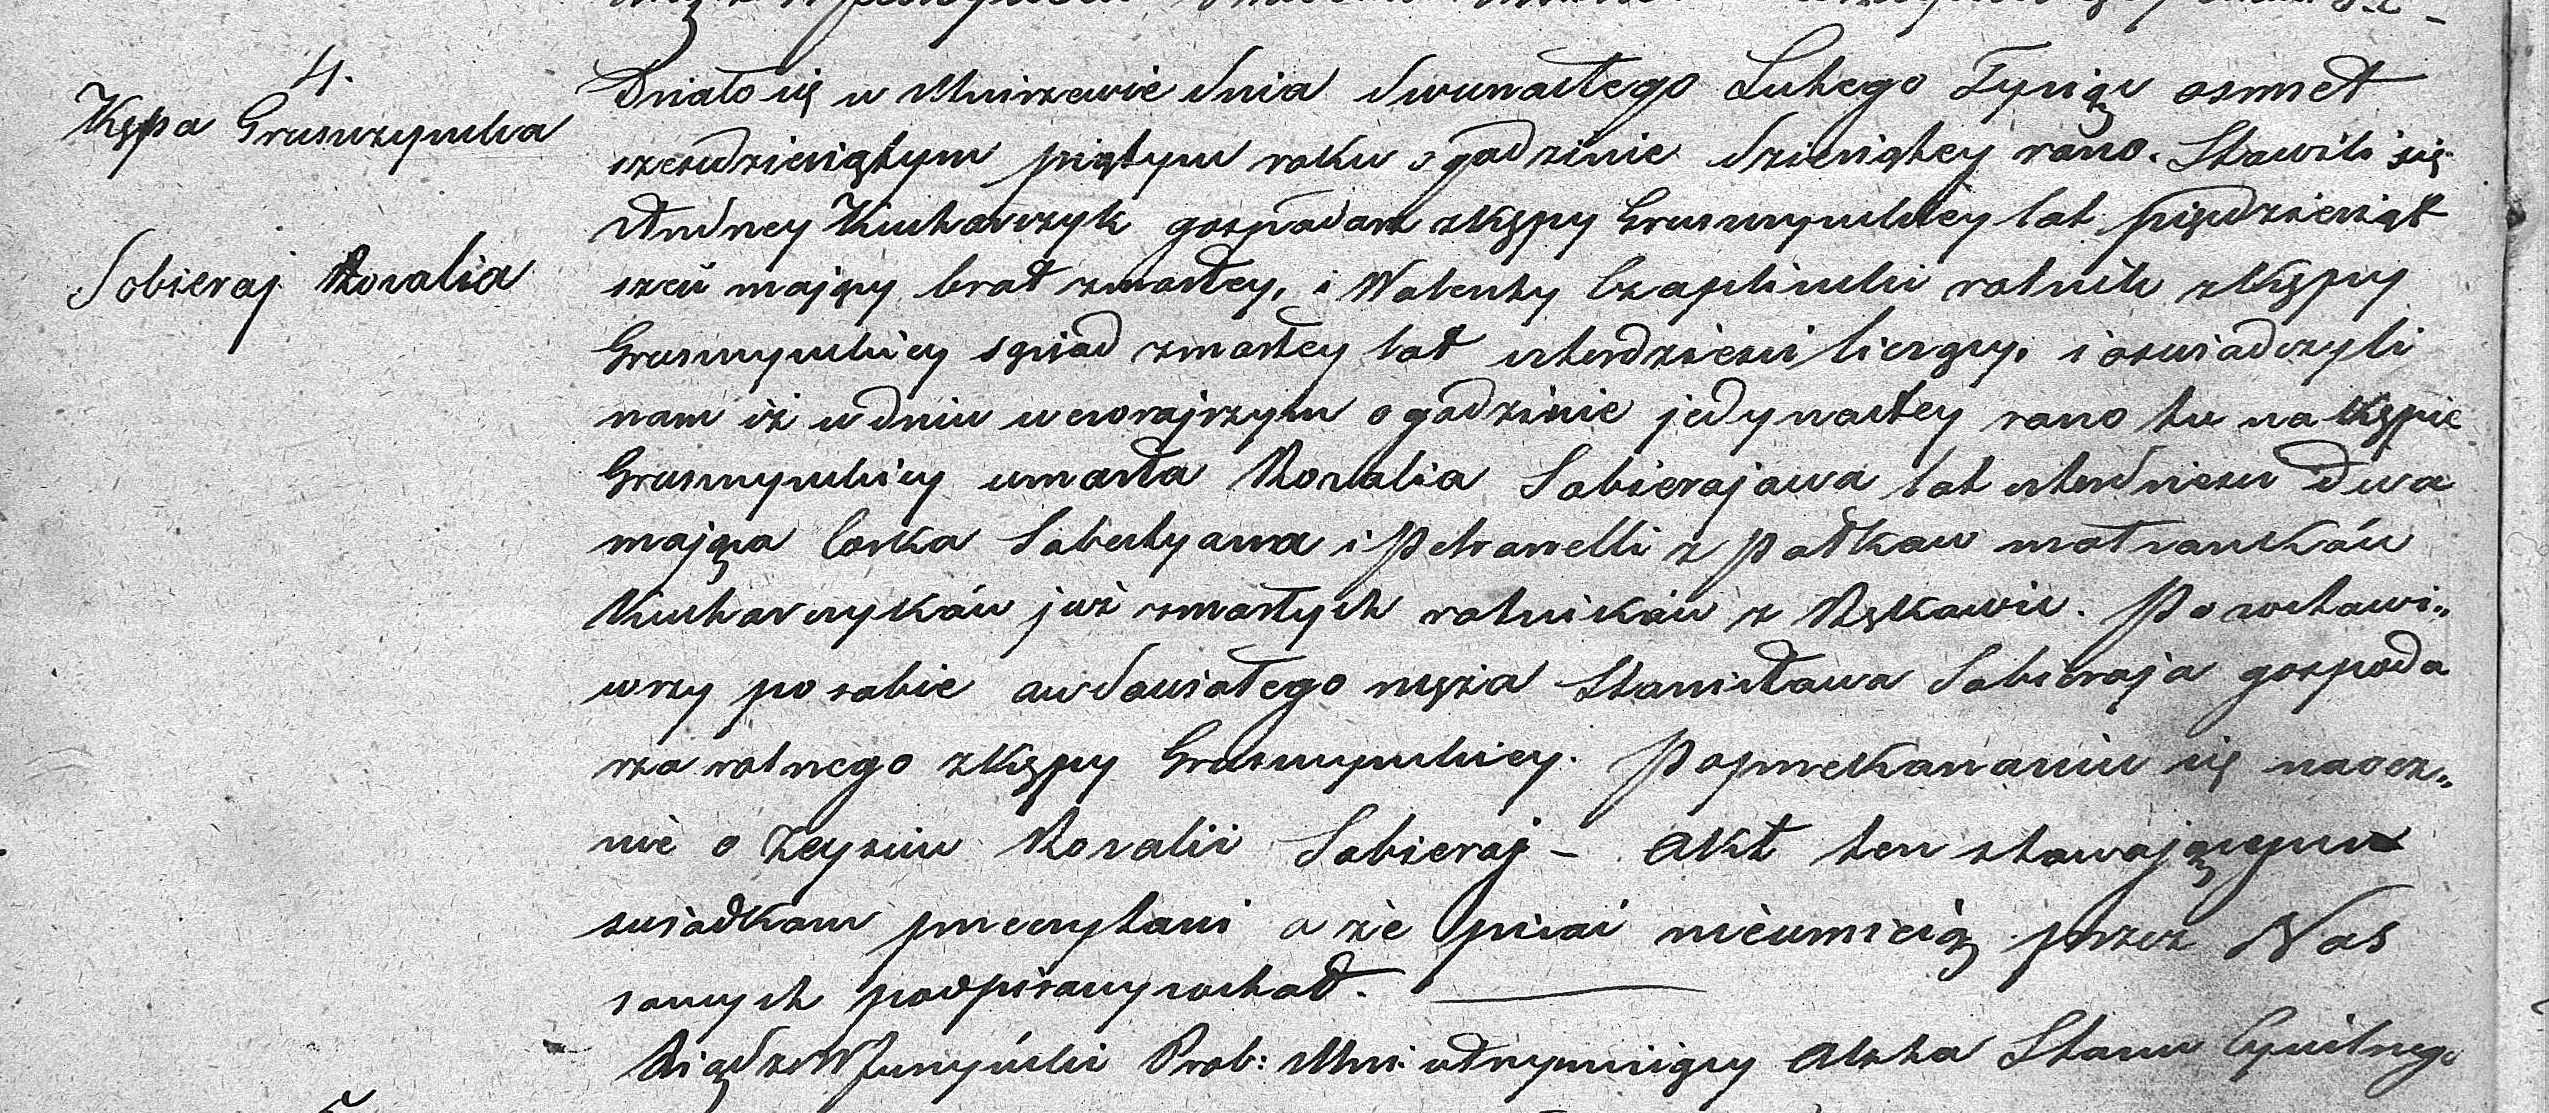 4.
Kępa Gruszczyńska
Sobieraj Rozalia
Działo się w Mniszewie dnia dwunastego Lutego Tysiąc osmset
szescdziesiątym piątym roku o godzinie dziesiątey rano. Stawili się
Andrzey Kucharczyk gospodarz z Kępy Gruszczyńskiey lat pięcdziesiąt
szesć maiący brat zmarłey, i Walenty Czapliński rolnik z Kępy
Gruszczyńskiey sąsiad zmarłey lat czterdziesci liczący, i oswiadczyli
nam iż w dniu wczorajszym o godzinie jedynastey rano tu na Kępie
Gruszczyńskiey umarła Rozalia Sobierajowa lat czterdziesci dwa
mająca Corka Sobestyana i Petronelli z Pałkow małzonków
Kucharczyków już zmarłych rolników z Rękowic. Pozostawi„
wszy po sobie owdowiałego męża Stanisława Sobieraja gospoda
rza rolnego z Kępy Gruszczyńskiey. Poprzekonaniu się naocz„
nie o Zeysciu Rozalii Sobieraj – Akt ten stawającym
swiadkom przeczytani a że pisać nieumieią przez Nas
samych podpisany został.
Prob: Mni: utrzymuiący Akta Stanu Cywilnego